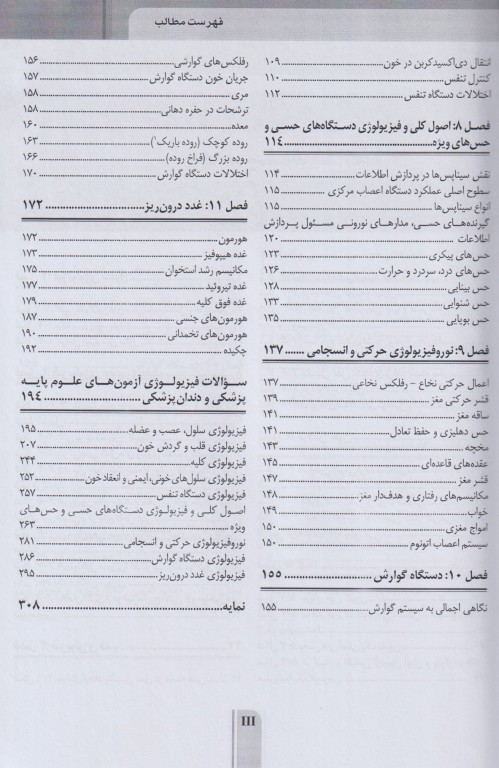 فهرست مطالب
انتقال دی‌اکسیدکربن در خون ۱۰۹
کنترل تنفس ۱۱۰
اختلالات دستگاه تنفس ۱۱۲
فصل ۸: اصول کلی و فیزیولوژی دستگاه‌های حسی و
حس‌های ویژه ۱۱۴
نقش سیناپس‌ها در پردازش اطلاعات ۱۱۴
سطوح اصلی عملکرد دستگاه اعصاب مرکزی ۱۱۵
انواع سیناپس‌ها ۱۱۵
گیرنده‌های حسی، مدارهای نورونی مسئول پردازش
اطلاعات ۱۲۰
حس‌های پیکری ۱۲۳
حس‌های درد، سردرد و حرارت ۱۲۶
حس بینایی ۱۲۸
حس شنوایی ۱۳۳
حس بویایی ۱۳۵
فصل ۹: نوروفیزیولوژی حرکتی و انسجامی ۱۳۷
اعمال حرکتی نخاع - رفلکس نخاعی ۱۳۷
قشر حرکتی مغز ۱۳۹
ساقه مغز ۱۴۱
حس دهلیزی و حفظ تعادل ۱۴۱
مخچه ۱۴۳
عقده‌های قاعده‌ای ۱۴۵
قشر مغز ۱۴۷
مکانیسم‌های رفتاری و هدف‌دار مغز ۱۴۸
خواب ۱۴۹
امواج مغزی ۱۵۰
سیستم اعصاب اتونوم ۱۵۰
فصل ۱۰: دستگاه گوارش ۱۵۵
نگاهی اجمالی به سیستم گوارش ۱۵۵
رفلکس‌های گوارشی ۱۵۶
جریان خون دستگاه گوارش ۱۵۷
مری ۱۵۸
ترشحات در حفره دهانی ۱۵۸
معده ۱۶۰
روده کوچک (روده باریک) ۱۶۳
روده بزرگ (فراخ روده) ۱۶۶
اختلالات دستگاه گوارش ۱۷۰
فصل ۱۱: غدد درون‌ریز ۱۷۲
هورمون ۱۷۲
غده هیپوفیز ۱۷۳
مکانیسم رشد استخوان ۱۷۵
غده تیروئید ۱۷۷
غده فوق کلیه ۱۷۹
هورمون‌های جنسی ۱۸۷
هورمون‌های تخمدانی ۱۹۰
چکیده ۱۹۲
سؤالات فیزیولوژی آزمون‌های علوم پایه
پزشکی و دندان‌پزشکی ۱۹۴
فیزیولوژی سلول، عصب و عضله ۱۹۵
فیزیولوژی قلب و گردش خون ۲۰۷
فیزیولوژی کلیه ۲۴۴
فیزیولوژی سلول‌های خونی، ایمنی و انعقاد خون ۲۵۲
فیزیولوژی دستگاه تنفس ۲۵۷
اصول کلی و فیزیولوژی دستگاه‌های حسی و حس‌های
ویژه ۲۶۳
نوروفیزیولوژی حرکتی و انسجامی ۲۸۱
فیزیولوژی دستگاه گوارش ۲۸۶
فیزیولوژی غدد درون‌ریز ۲۹۵
نمایه ۳۰۸
III